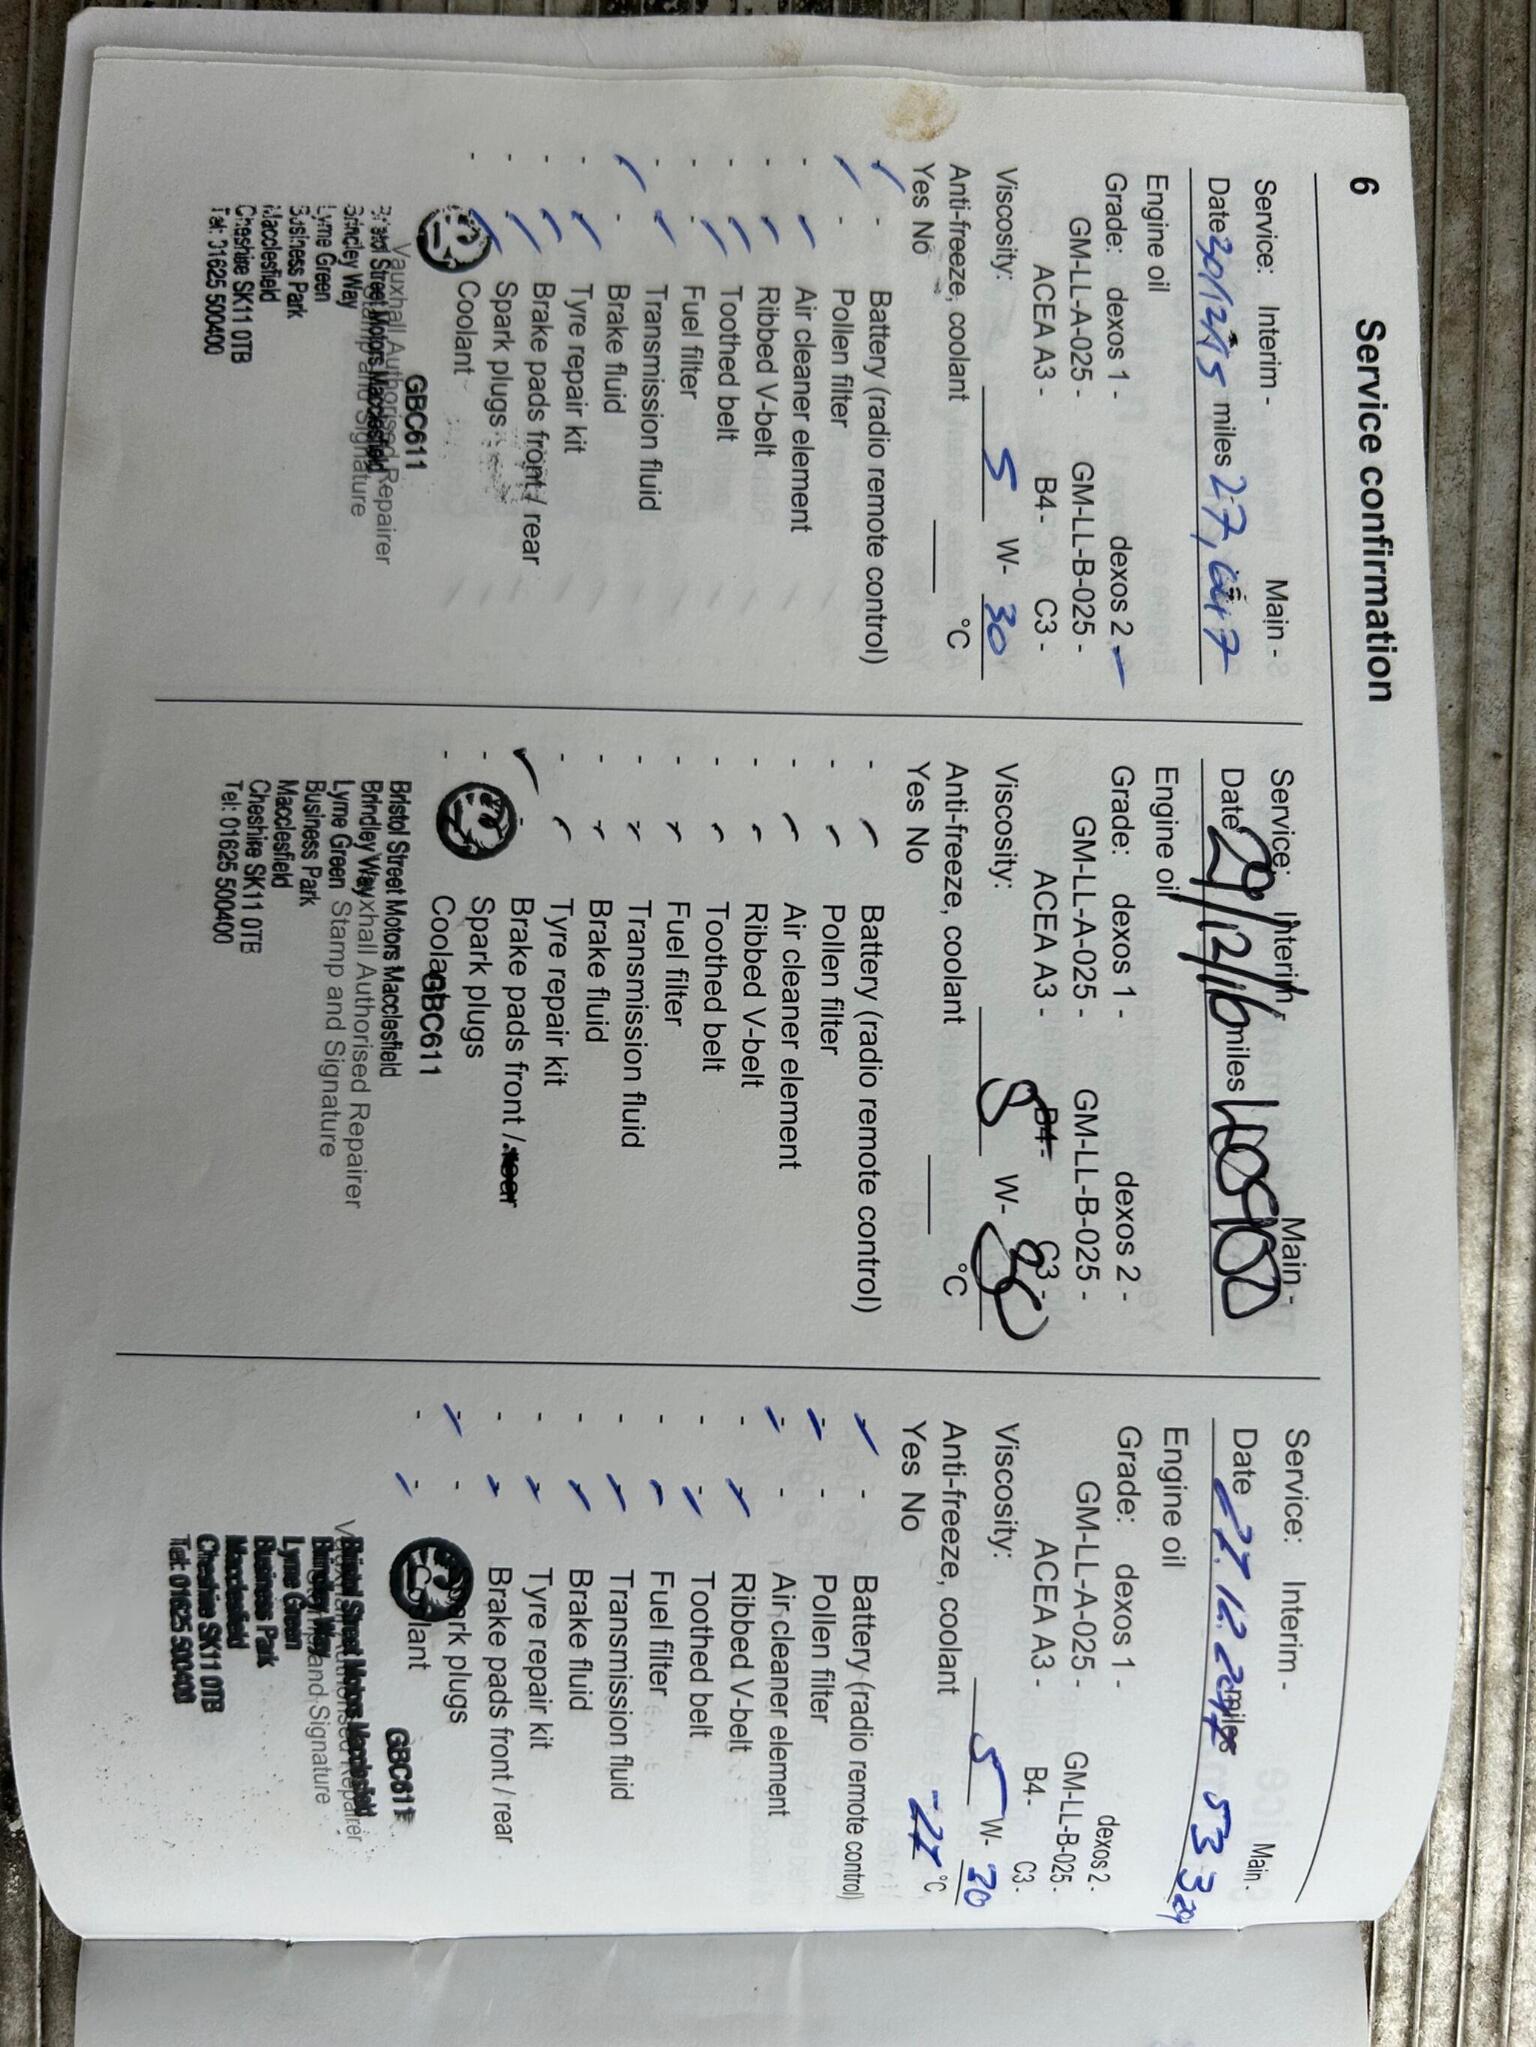 6 Service confirmation
Service: Interim - Main -
Date 30/12/15 miles 27,
Engine oil
Grade: dexos 1 - dexos 2 -
GM-LL-A-025 - GM-LL-B-025 -
ACEA A3 - B4 - C3 -
Viscosity: 5 W- 30
Anti-freeze, coolant °C
Yes No
Battery (radio remote control)
Pollen filter
Air cleaner element
Ribbed V-belt
Toothed belt
Fuel filter
Transmission fluid
Brake fluid
Tyre repair kit
Brake pads front / rear
Spark plugs
Coolant
GBC611
Vauxhall Authorised Repairer
Stamp and Signature
Bristol Street Motors Macclesfield
Brindley Way
Lyme Green
Business Park
Macclesfield
Cheshire SK11 0TB
Tel: 01625 500400
Service: Interim - Main -
Date 29/12/16 miles
Engine oil
Grade: dexos 1 - dexos 2 -
GM-LL-A-025 - GM-LL-B-025 -
ACEA A3 - B4 - C3 -
Viscosity: W-
Anti-freeze, coolant °C
Yes No
Battery (radio remote control)
Pollen filter
Air cleaner element
Ribbed V-belt
Toothed belt
Fuel filter
Transmission fluid
Brake fluid
Tyre repair kit
Brake pads front / rear
Spark plugs
Coolant
GBC611
Bristol Street Motors Macclesfield
Vauxhall Authorised Repairer
Brindley Way
Stamp and Signature
Lyme Green
Business Park
Macclesfield
Cheshire SK11 0TB
Tel: 01625 500400
Service: Interim - Main -
Date 27.12.2017 miles 53
Engine oil
Grade: dexos 1 - dexos 2 -
GM-LL-A-025 - GM-LL-B-025 -
ACEA A3 - B4 - C3 -
Viscosity: 5 W-
Anti-freeze, coolant °C
Yes No
Battery (radio remote control)
Pollen filter
Air cleaner element
Ribbed V-belt
Toothed belt
Fuel filter
Transmission fluid
Brake fluid
Tyre repair kit
Brake pads front / rear -
Spark plugs
Coolant
GBC611
Bristol Street Motors Macclesfield
Vauxhall Authorised Repairer
Brindley Way
Stamp and Signature
Lyme Green
Business Park
Macclesfield
Cheshire SK11 0TB
Tel: 01625 500400